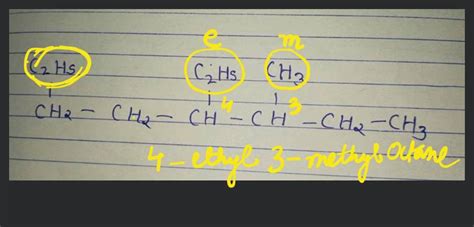 e m
C₂H₅ C₂H₅ CH₃
CH₂ – CH₂ – CH – CH – CH₂ – CH₃
4 3
4 – ethyl 3 – methyl Octane